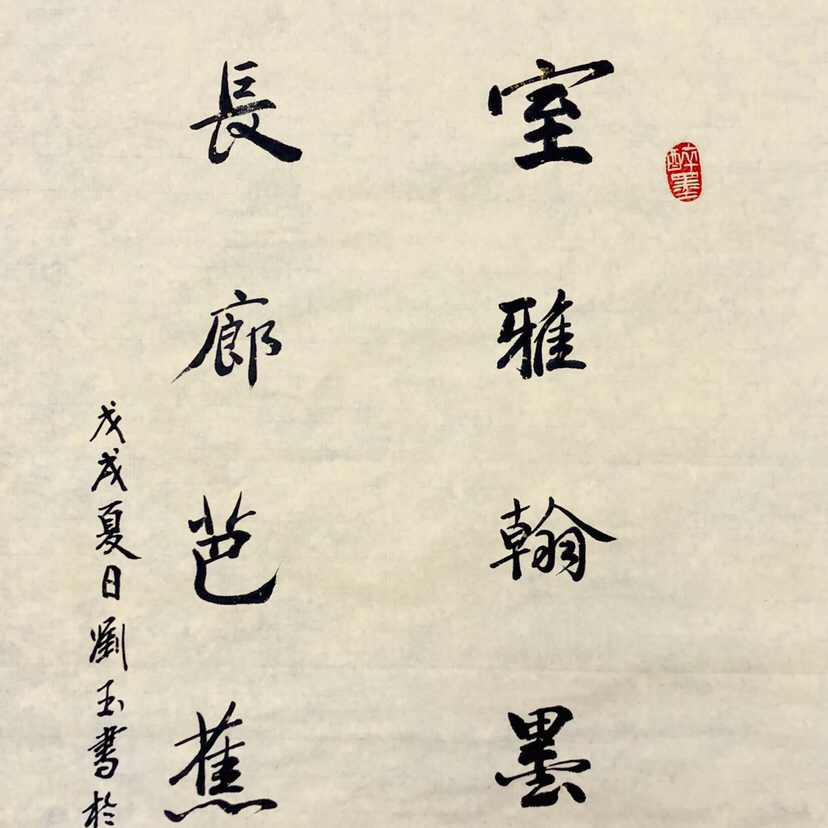 醉墨
室雅翰墨
長廊芭蕉
戊戌夏日劉玉書於